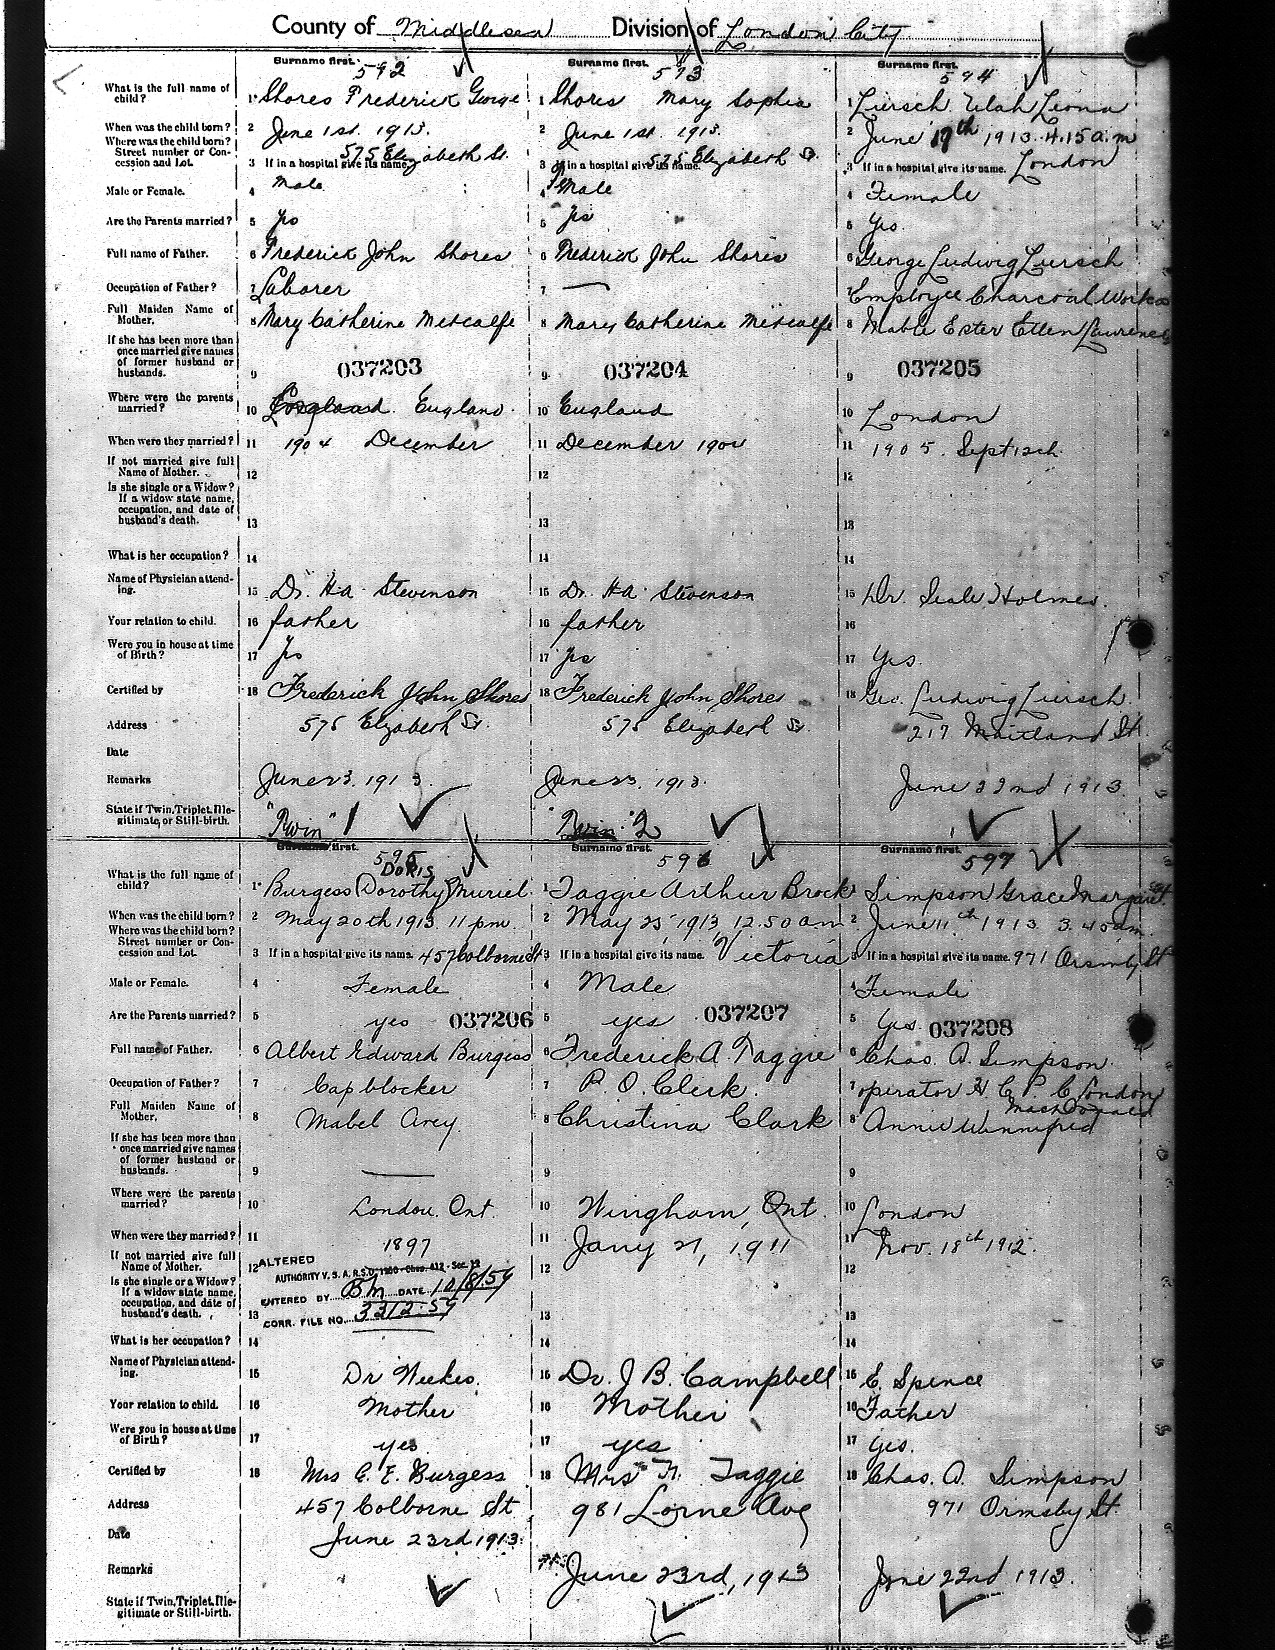 County of Middlesex Division of London City
Surname first. 592 Surname first. 593 Surname first. 594
What is the full name of child? 1 Shores Frederick George 1 Shores Mary Sophia 1 Liersch Leona
When was the child born? 2 June 1st. 1913. 2 June 1st. 1913. 2 June 17th 1913. 4.15 a.m
Where was the child born? Street number or Concession and Lot. 3 If in a hospital give its name. 575 Elizabeth St. 3 If in a hospital give its name. 575 Elizabeth St. 3 If in a hospital give its name. London
Male or Female. 4 Male 4 Male 4 Female
Are the Parents married? 5 Yes 5 Yes 5 Yes.
Full name of Father. 6 Frederick John Shores 6 Frederick John Shores 6 George Ludwig Liersch
Occupation of Father? 7 Laborer 7 — 7 Employee Charcoal Works
Full Maiden Name of Mother. 8 Mary Catherine Metcalfe 8 Mary Catherine Metcalfe 8 Mable Ester Ellen Lawrence
If she has been more than once married give names of former husband or husbands. 9 037203 9 037204 9 037205
Where were the parents married? 10 England. 10 England 10 London
When were they married? 11 1904 December 11 December 1904 11 1905. Sept 12th
If not married give full Name of Mother. 12 12 12
Is she single or a Widow? If a widow state name, occupation, and date of husband's death. 13 13 13
What is her occupation? 14 14 14
Name of Physician attending. 15 Dr. H.A. Stevenson 15 Dr. H A. Stevenson 15 Dr. Holmes.
Your relation to child. 16 father 16 father 16
Were you in house at time of Birth? 17 Yes 17 Yes 17 Yes.
Certified by 18 Frederick John Shores 18 Frederick John Shores 18 Geo. Ludwig Liersch
Address 575 Elizabeth St. 575 Elizabeth St. 217 Maitland St.
Date
Remarks June 23. 1913. June 23. 1913. June 22nd 1913.
State if Twin, Triplet, Illegitimate, or Still-birth. "Twin" 1 "Twin" 2
Surname first. 595 Surname first. 596 Surname first. 597
Doris
What is the full name of child? 1 Burgess (Dorothy) Muriel 1 Taggie Arthur Brock 1 Simpson Grace Margaret
When was the child born? 2 May 20th 1913. 11 pm. 2 May 25, 1913, 12.50 am 2 June 11th 1913 3.45 am.
Where was the child born? Street number or Concession and Lot. 3 If in a hospital give its name. 457 Colborne St 3 If in a hospital give its name. Victoria 3 If in a hospital give its name. 971 Ormsby St
Male or Female. 4 Female 4 Male 4 Female
Are the Parents married? 5 yes 037206 5 yes 037207 5 Yes. 037208
Full name of Father. 6 Albert Edward Burgess 6 Frederick A Taggie 6 Chas. A. Simpson.
Occupation of Father? 7 Cap blocker 7 P. O. Clerk. 7 operator London
Full Maiden Name of Mother. 8 Mabel Arey. 8 Christina Clark 8 Annie Winnifred MacDonald
If she has been more than once married give names of former husband or husbands. 9 — 9 9
Where were the parents married? 10 London. Ont. 10 Wingham, Ont. 10 London
When were they married? 11 1897 11 Jany 21, 1911 11 Nov. 18th 1912.
If not married give full Name of Mother. 12 ALTERED 12 12
AUTHORITY V. S. A. R.S.O. 1950 - Chap. 412 - Sec.
Is she single or a Widow? If a widow state name, occupation, and date of husband's death. 13 ENTERED BY BM DATE 10/8/59 13 13
CORR. FILE NO. 3312-59
What is her occupation? 14 14 14
Name of Physician attending. 15 Dr Weekes. 15 Dr. J B. Campbell 15 E. Spence
Your relation to child. 16 Mother 16 Mother 16 Father
Were you in house at time of Birth? 17 yes 17 yes 17 Yes.
Certified by 18 Mrs Burgess 18 Mrs Taggie 18 Chas. A. Simpson
Address 457 Colborne St 981 Lorne Ave 971 Ormsby St.
Date June 23rd 1913.
Remarks June 23rd, 1913 June 22nd 1913.
State if Twin, Triplet, Illegitimate or Still-birth.